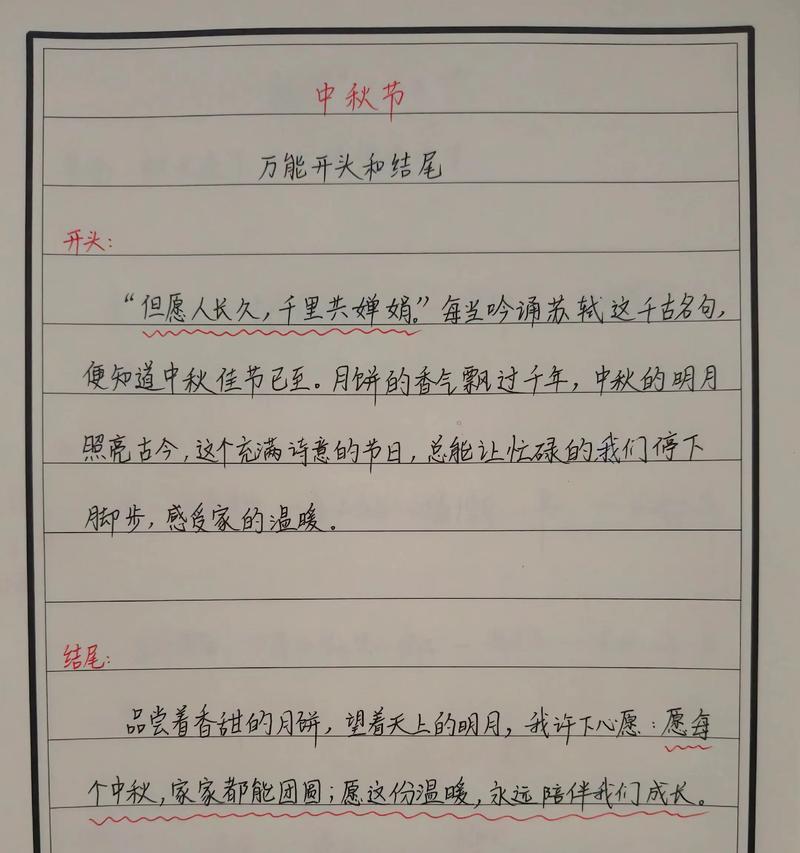 中秋节
万能开头和结尾
开头:
“但愿人长久,千里共婵娟。”每当吟诵苏轼这千古名句,
便知道中秋佳节已至。月饼的香气飘过千年,中秋的明月
照亮古今,这个充满诗意的节日,总能让忙碌的我们停下
脚步,感受家的温暖。
结尾:
品尝着香甜的月饼,望着天上的明月,我许下心愿:愿每
个中秋,家家都能团圆;愿这份温暖,永远陪伴我们成长。